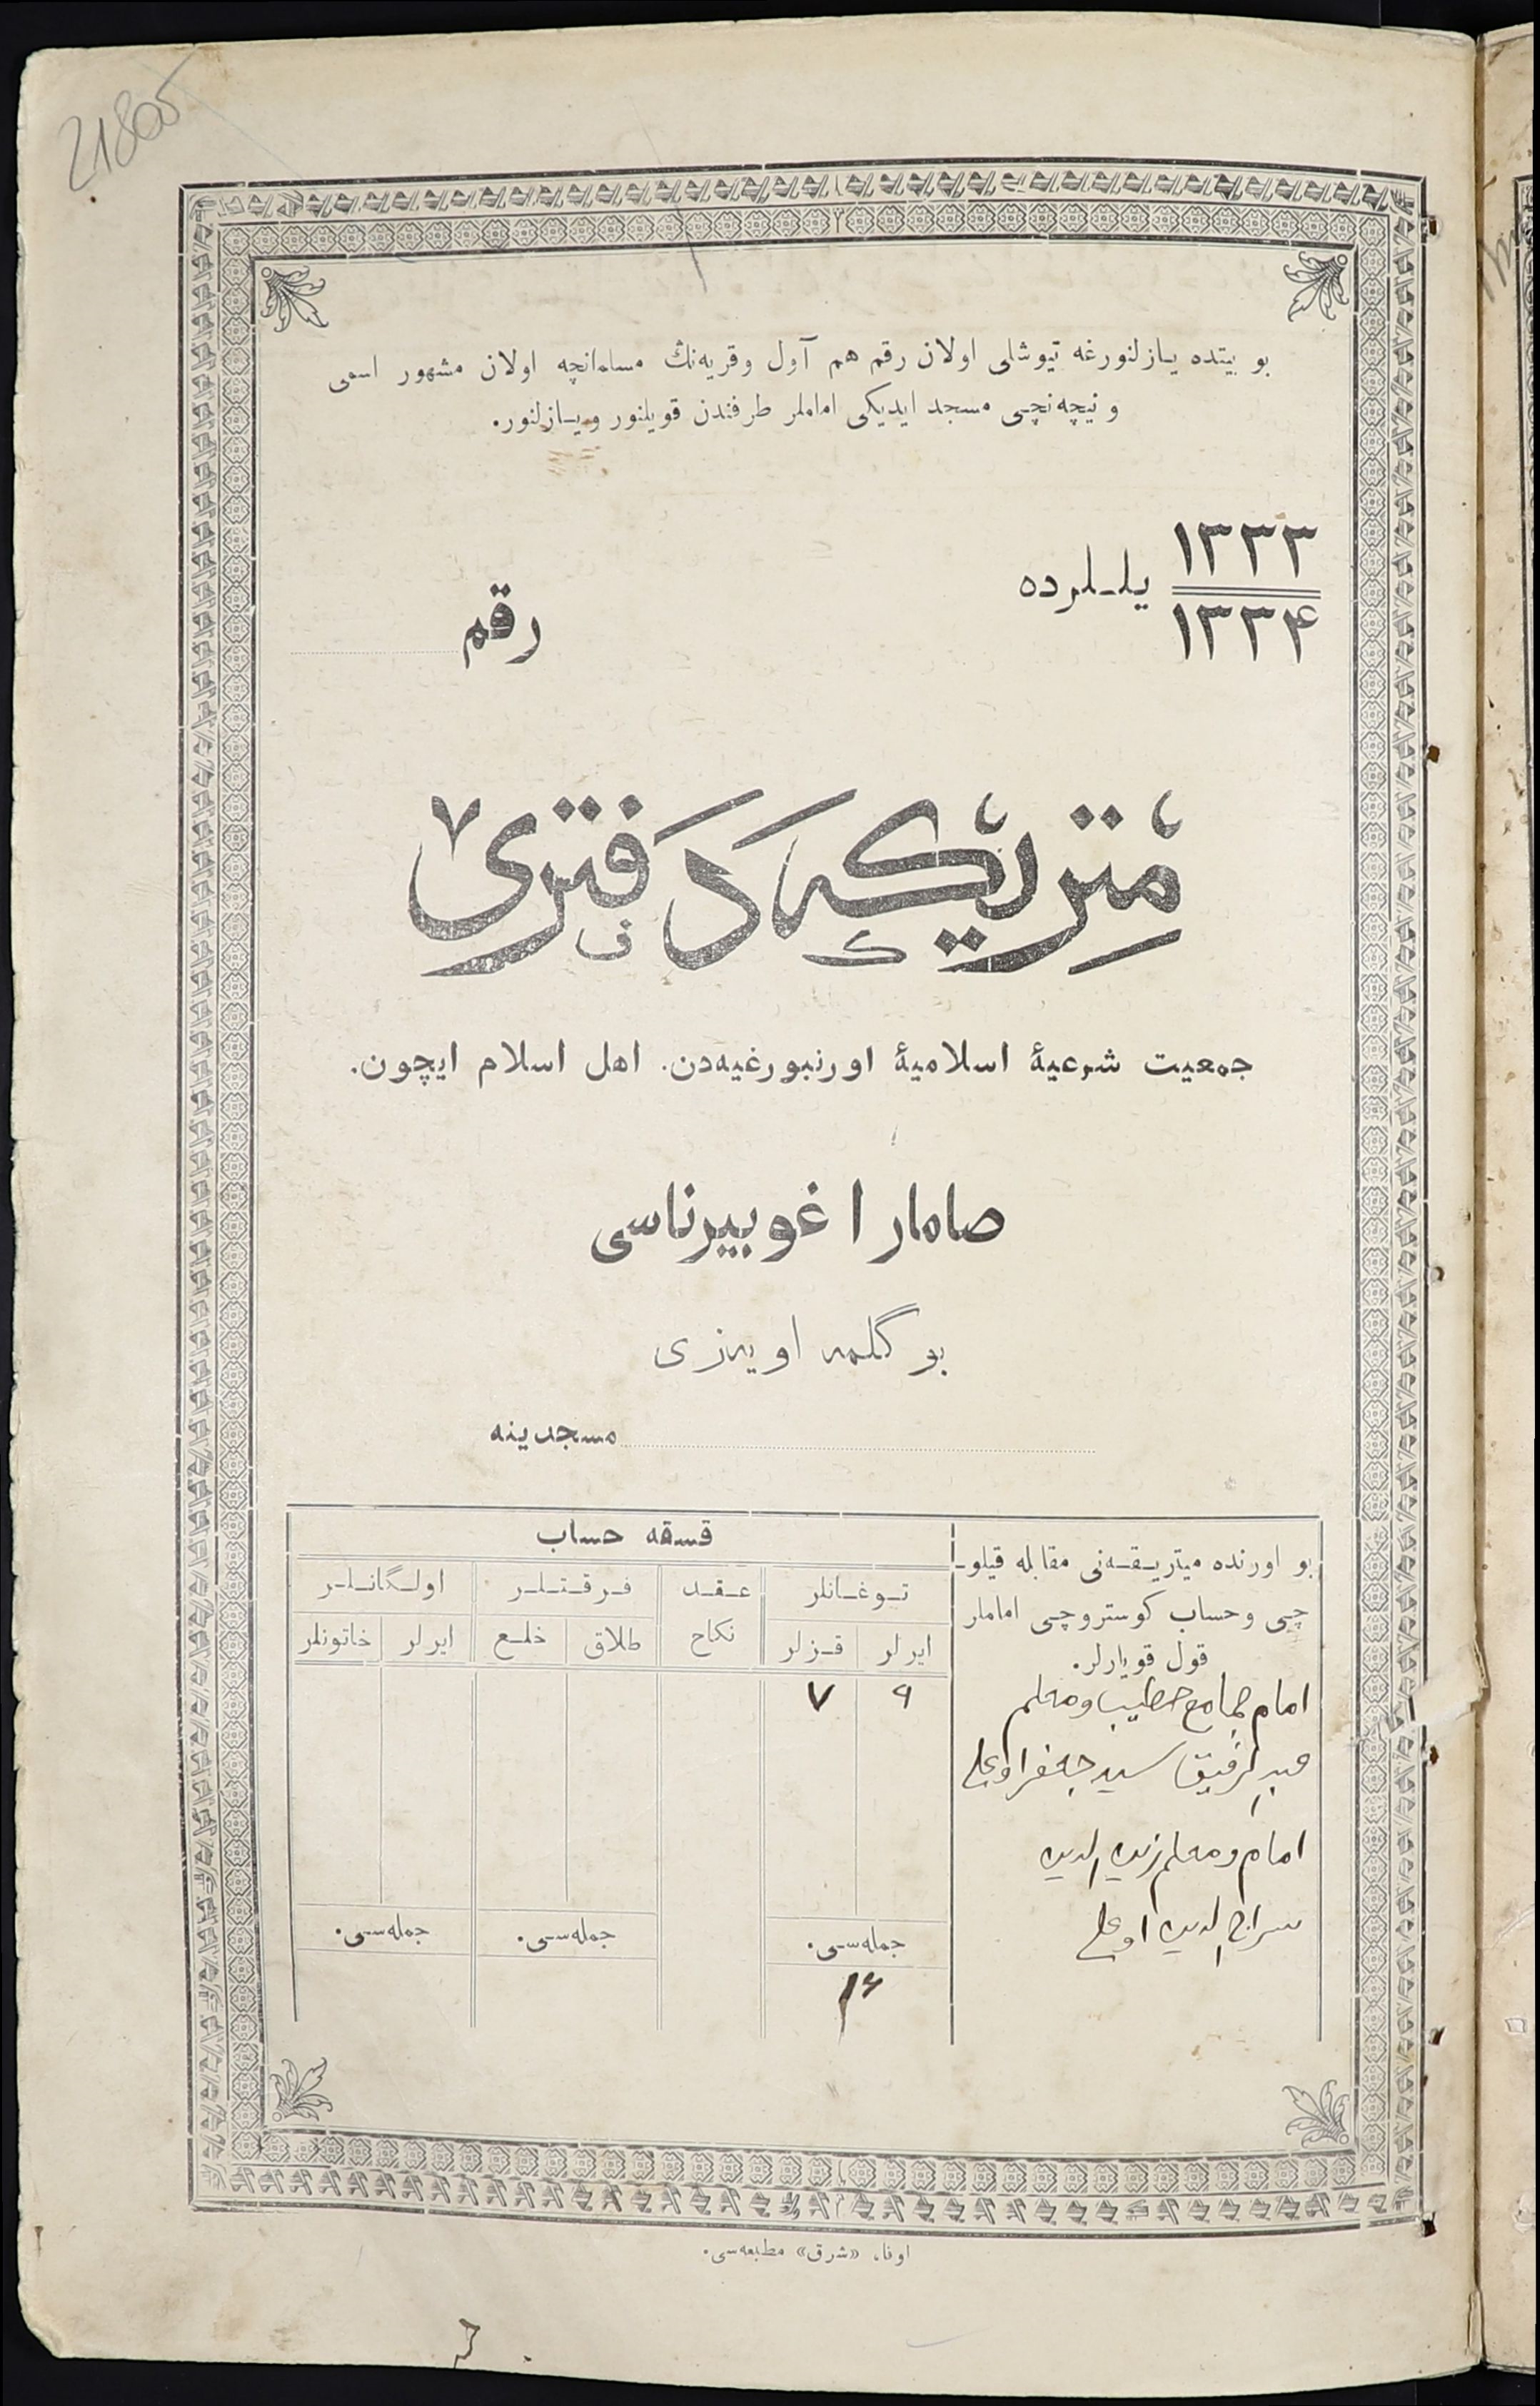 21805
بو بیتده یازلنورغه تیوشلی اولان رقم هم آول وقریه‌نڭ مسلمانچه اولان مشهور اسمی
و نیچه‌نچی مسجد ایدیکی اماملر طرفندن قویلنور و یازلنور.
۱۳۳۳
۱۳۳۴
یللرده
رقم
مَتریکَه دَفتری
جمعیت شرعیهٔ اسلامیهٔ اورنبورغیه‌دن. اهل اسلام ایچون.
صامارا غوبیرناسی
بوگلمه اویه‌زی
مسجدینه
بو اورنده میتریقه‌نی مقابله قیلو-
چی وحساب کوستروچی اماملر
قول قویارلر.
امام جامع خطیب ومعلم
عبدالرفیق سید جعفر اوغلی
امام ومعلم زین الدین
سراج الدین اوغلی
قسقه حساب
توغانلر
عقد
فرقتلر
اولگانلر
ایرلر
قزلر
نکاح
طلاق
خلع
ایرلر
خاتونلر
۹
۷
جمله‌سی.
جمله‌سی.
جمله‌سی.
۱۶
اوفا، «شرق» مطبعه‌سی.